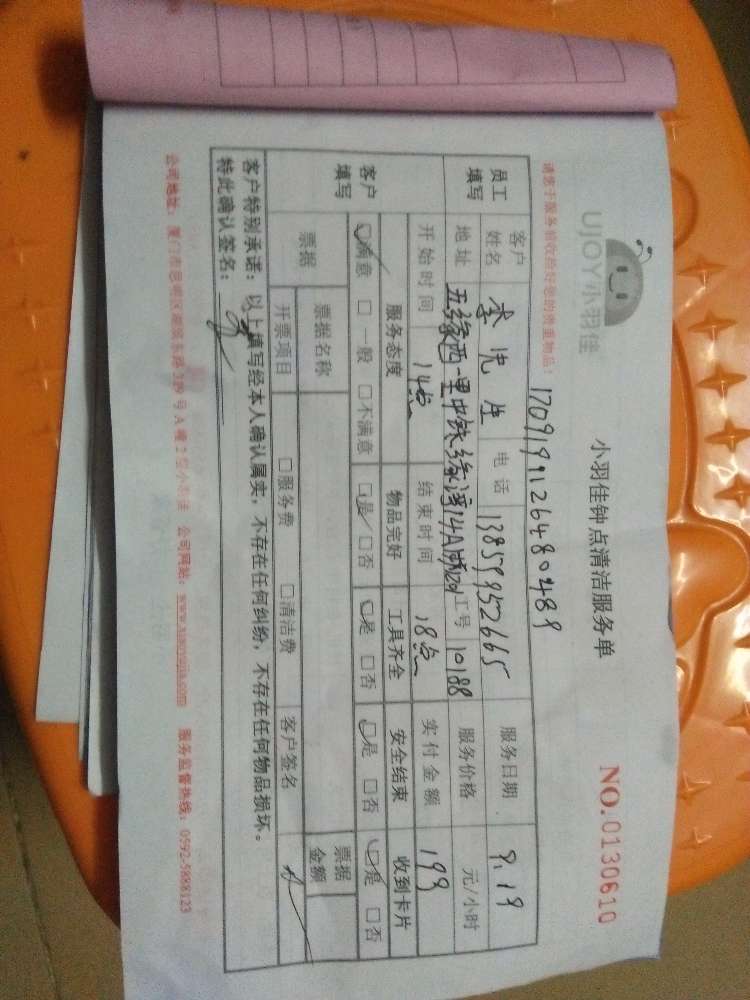 UJOY小羽佳
小羽佳钟点清洁服务单
NO.0130610
请您于服务前收拾好您的贵重物品！
17091911264480489
员工填写
客户姓名 李先生 电话 13859952665 服务日期 9.19
地址 五缘西一里中铁缘湾14A 1201 工号 10188 服务价格 元/小时
开始时间 14点 结束时间 18点 实付金额 199
客户填写
服务态度 物品完好 工具齐全 安全结束 收到卡片
☑满意 □一般 □不满意 ☑是 □否 ☑是 □否 ☑是 □否 ☑是 □否
票据 票据名称 票据金额
开票项目 □服务费 □清洁费 客户签名
客户特别承诺：以上填写经本人确认属实，不存在任何纠纷，不存在任何物品损坏。
特此确认签名：
公司地址：厦门市思明区 号A幢2 小羽佳 公司网站：www.xiaoyujia.com 服务监督热线：0592-5888123